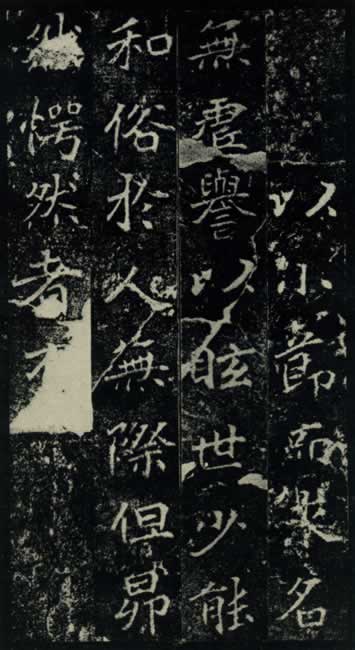 以小節而名
無虛譽以眩世少能
和俗於人無際但昴
愕然者才